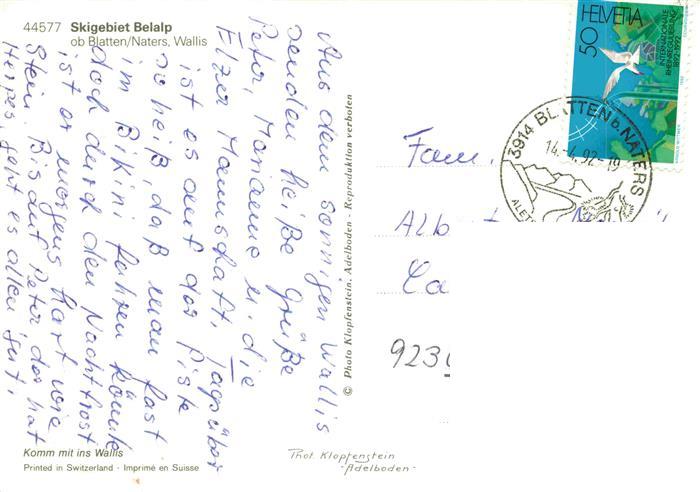 44577 Skigebiet Belalp
ob Blatten/Naters, Wallis
Aus dem sonnigen Wallis
senden heiße Grüße
Peter, Marianne u. die
Elzer Mannschaft. Tagsüber
ist es auf der Piste
so heiß, daß man fast
im Bikini fahren könnte
doch durch den Nachtfrost
ist er morgens hart wie
Stein. Bis auf Peter der hat
Herpes, geht es allen gut.
Komm mit ins Wallis
Printed in Switzerland · Imprimé en Suisse
© Photo Klopfenstein, Adelboden - Reproduktion verboten
Phot. Klopfenstein
-Adelboden-
HELVETIA
50
INTERNATIONALE
RHEINREGULIERUNG
1892-1992
3914 BLATTEN b. NATERS
14.-4.92-19
ALET
Fam.
Alb
Ca
923